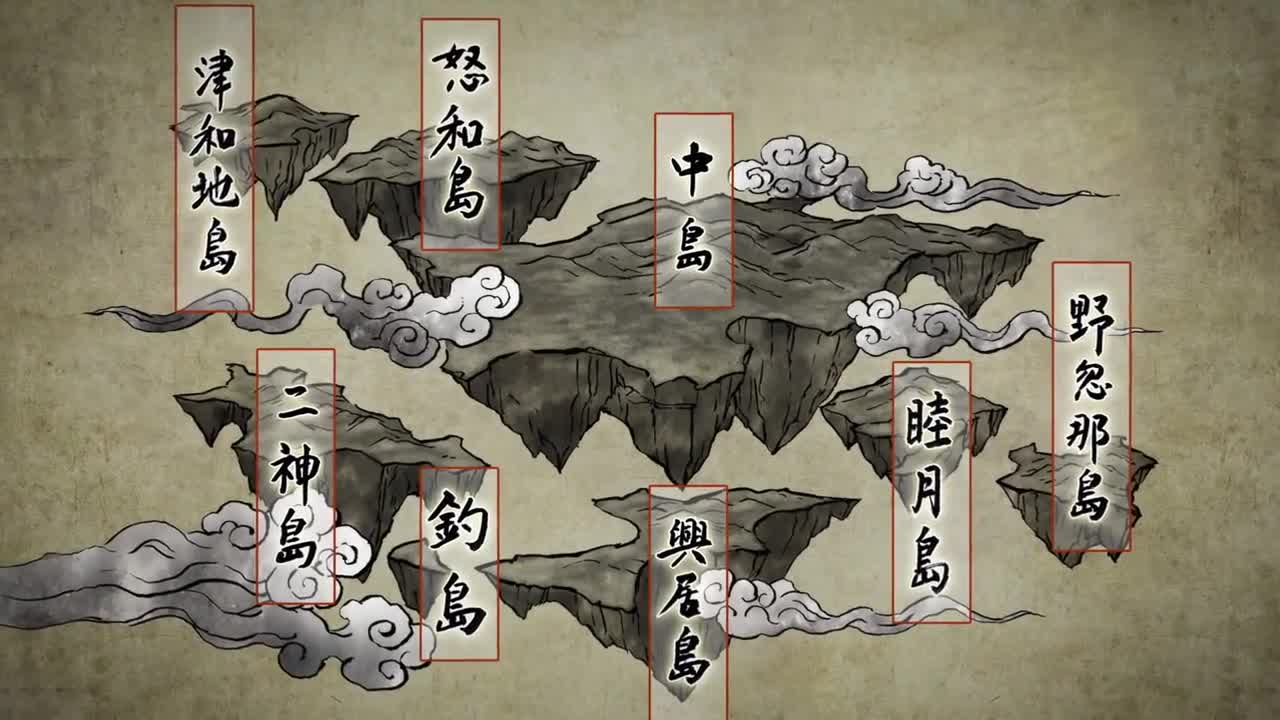 津和地島
怒和島
中島
野忽那島
睦月島
二神島
釣島
興居島